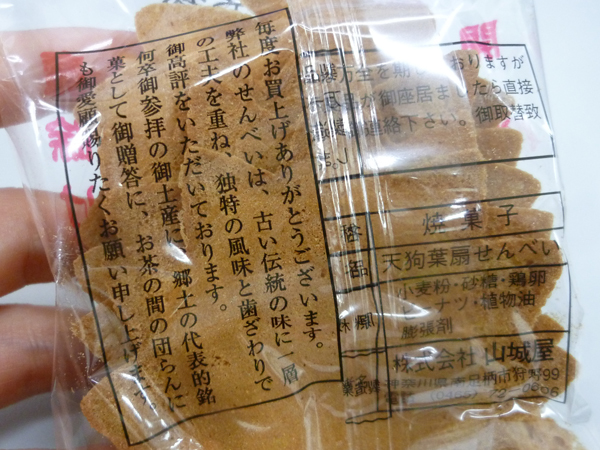 毎度お買上げありがとうございます。
弊社のせんべいは、古い伝統の味に一層
の工夫を重ね、独特の風味と歯ざわりで
御高評をいただいております。
何卒御参拝の御土産に、郷土の代表的銘
菓として御贈答に、お茶の間の団らんに
も御愛顧賜りたくお願い申し上げます。
万全を期しておりますが
が御座居ましたら直接
連絡下さい。御取替致
焼菓子
天狗葉扇せんべい
小麦粉・砂糖・鶏卵
ナツ・植物油
膨張剤
株式会社 山城屋
神奈川県南足柄市狩野99